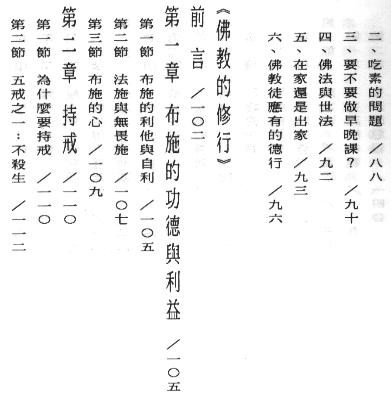 二、吃素的問題　／八八
三、要不要做早晚課？　／九十
四、佛法與世法　／九二
五、在家還是出家　／九三
六、佛教徒應有的德行　／九六
《佛教的修行》
前　言　／一〇二
第一章　布施的功德與利益　／一〇五
第一節　布施的利他與自利　／一〇五
第二節　法施與無畏施　／一〇七
第三節　布施的心　／一〇九
第二章　持戒　／一一〇
第一節　為什麼要持戒　／一一〇
第二節　五戒之一：不殺生　／一一二